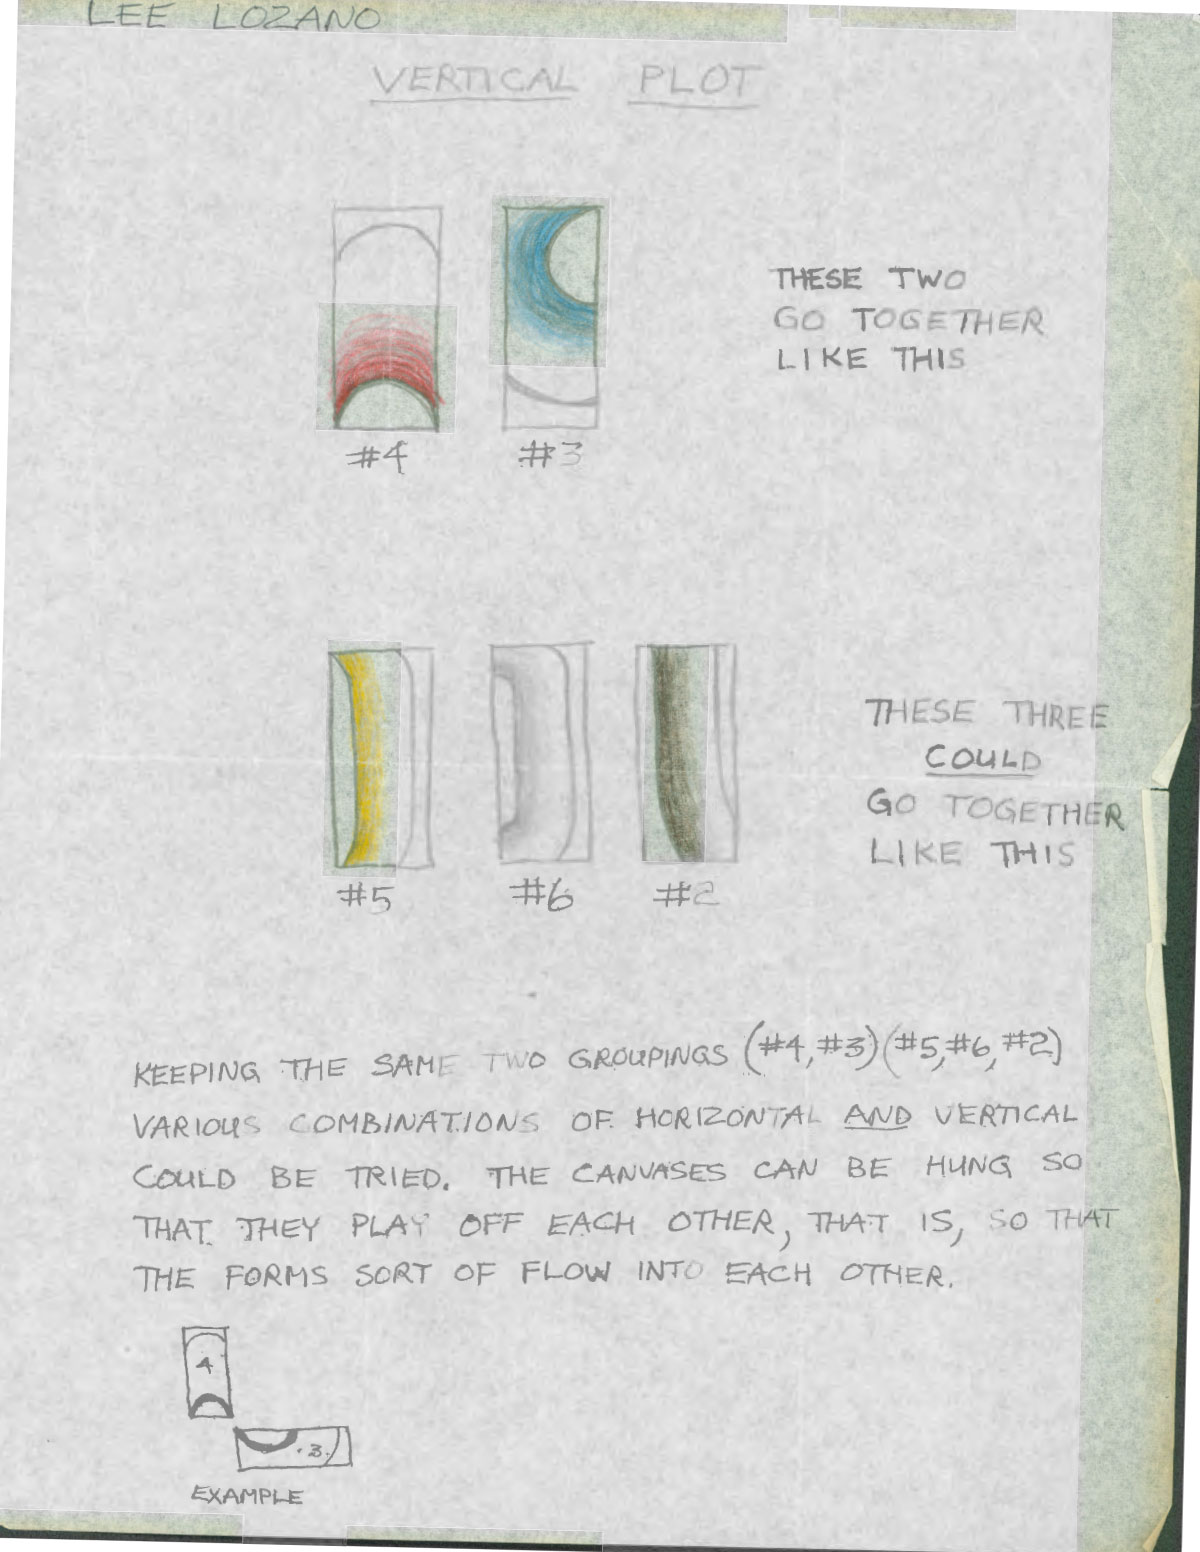 LEE LOZANO
VERTICAL PLOT
THESE TWO
GO TOGETHER
LIKE THIS
#4 #3
THESE THREE
COULD
GO TOGETHER
LIKE THIS
#5 #6 #2
KEEPING THE SAME TWO GROUPINGS (#4,#3)(#5,#6,#2)
VARIOUS COMBINATIONS OF HORIZONTAL AND VERTICAL
COULD BE TRIED. THE CANVASES CAN BE HUNG SO
THAT THEY PLAY OFF EACH OTHER, THAT IS, SO THAT
THE FORMS SORT OF FLOW INTO EACH OTHER.
4
3
EXAMPLE